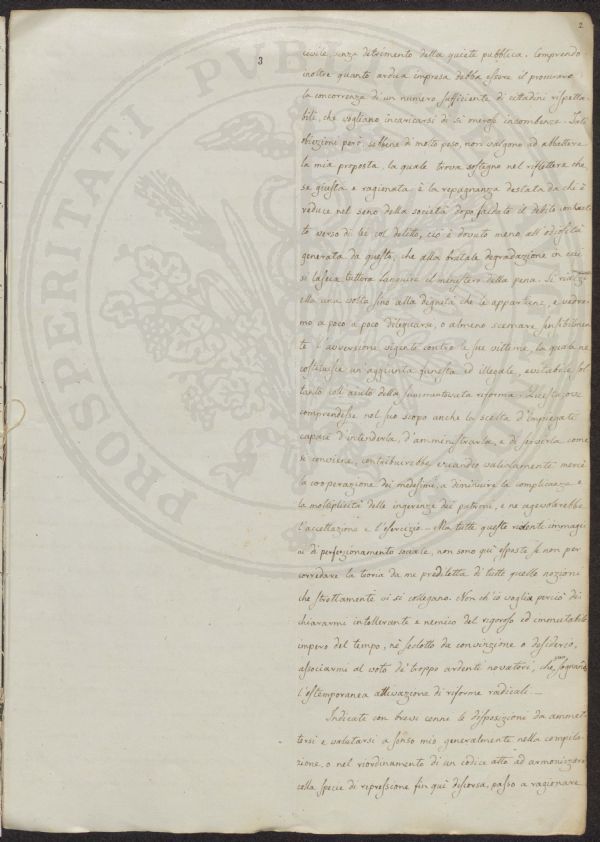 2
3
civile senza detrimento della quiete pubblica. Comprendo
inoltre quanto ardua impresa debba essere il procurare
la concorrenza di un numero sufficiente di cittadini rispetta-
bili, che vogliano incaricarsi di sì onerose incombenze. Tali
obiezioni però, sebbene di molto peso, non valgono ad abbattere
la mia proposta, la quale trova sostegno nel riflettere che
se giusta e ragionata è la repugnanza destata da chi è
reduce nel seno della società dopo saldato il debito contrat-
to verso di lei col delitto, ciò è dovuto meno all'odiosità
generata da questo, che alla brutale degradazione in cui
si lascia tuttora languire il ministero della pena. Si rialzi
ella una volta fino alla dignità che le appartiene, e vedre-
mo a poco a poco dileguarsi, o almeno scemare sensibilmen-
te l'avversione vigente contro le sue vittime, la quale ne
costituisce un'aggiunta funesta ed illegale, evitabile sol-
tanto coll'aiuto della summentovata riforma. Questa, ove
comprendesse nel suo scopo anche la scelta d'Impiegati
capaci d'intenderla, d'amministrarla, e di servirla come
si conviene, contribuirebbe validamente mercè
la cooperazione dei medesimi, a diminuire la complicanza e
la moltiplicità delle ingerenze dei patroni, e ne agevolerebbe
l'accettazione e l'esercizio. — Ma tutte queste ridenti immagi-
ni di perfezionamento sociale, non sono quì esposte se non per
corredare la teoria da me prediletta di tutte quelle nozioni
che strettamente vi si collegano. Non ch'io voglia perciò di-
chiararmi intollerante e nemico del rigoroso ed immutabile
impero del tempo, nè sedotto da convinzione o desiderio,
associarmi al voto de' troppo ardenti novatori, che sognano
l'estemporanea attivazione di riforme radicali. —
Indicate con brevi cenni le disposizioni da ammet-
tersi e valutarsi a senso mio generalmente nella compila-
zione, o nel riordinamento di un codice atto ad armonizzare
colla specie di repressione fin quì discorsa, passo a ragionare
PROSPERITATI PUBLICAE